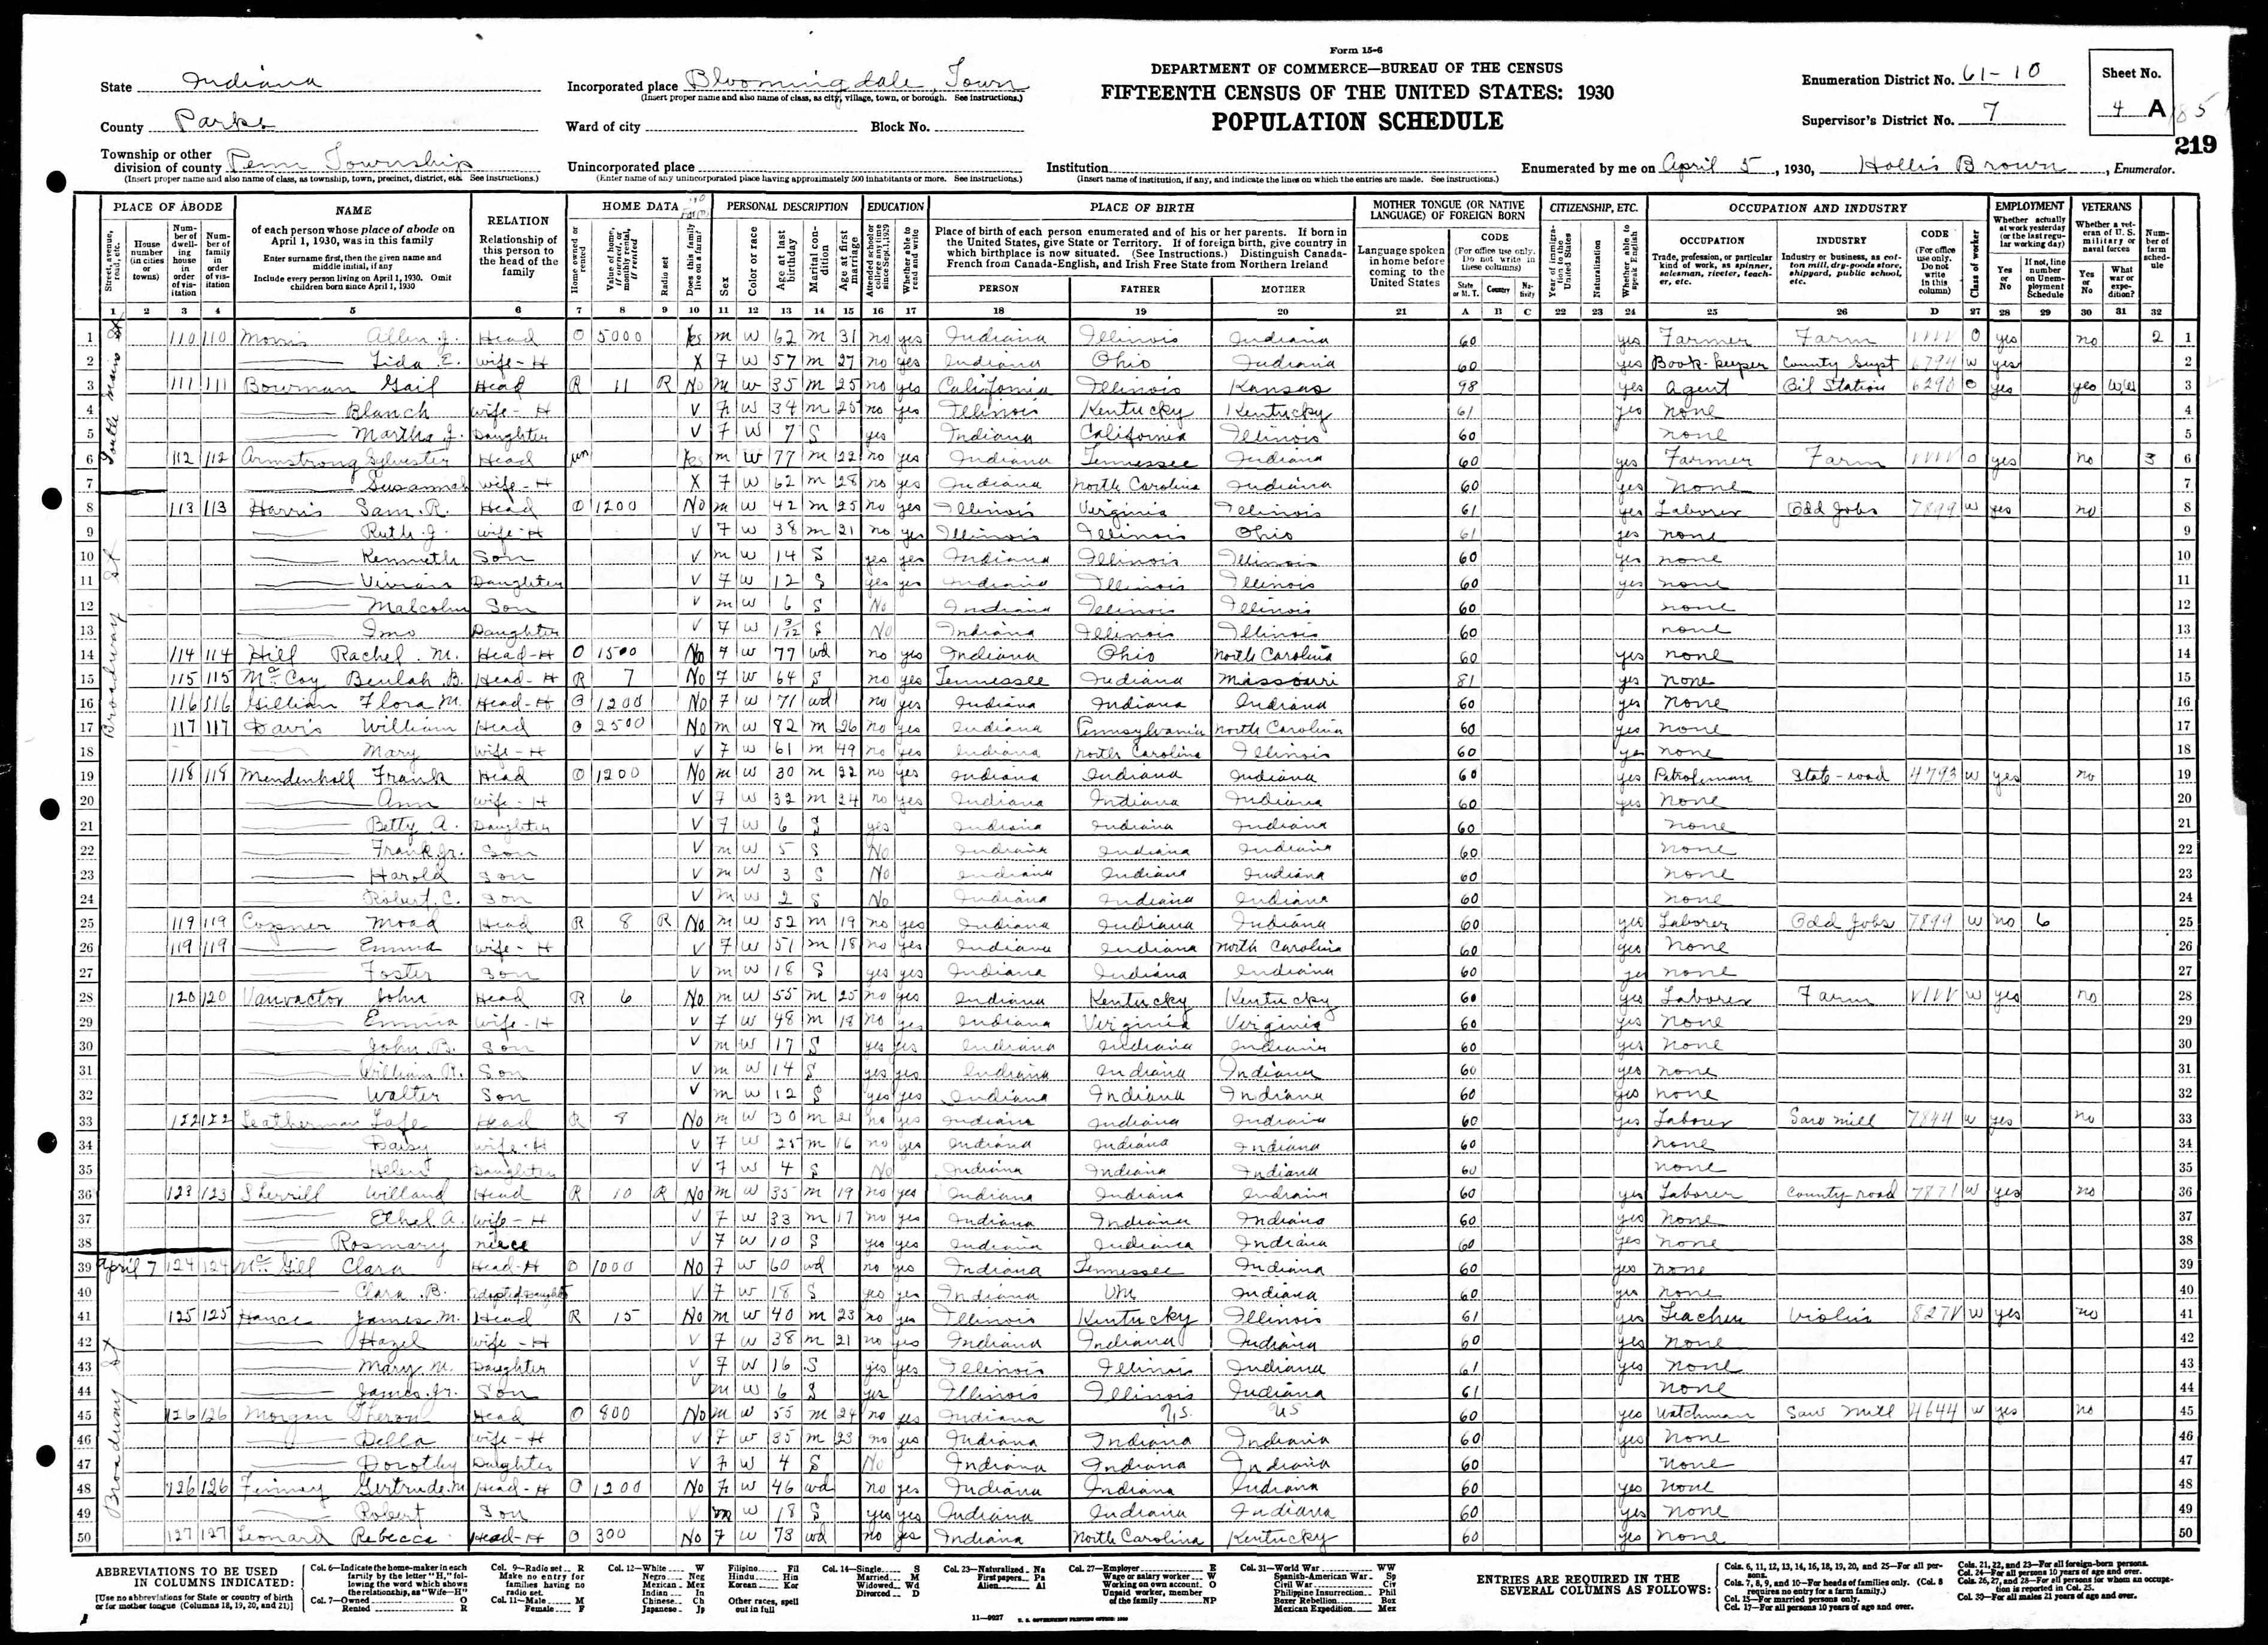 Form 15-6
DEPARTMENT OF COMMERCE—BUREAU OF THE CENSUS
FIFTEENTH CENSUS OF THE UNITED STATES: 1930
POPULATION SCHEDULE
State Indiana
County Parke
Township or other division of county Penn Township
(Insert proper name and also name of class, as township, town, precinct, district, etc. See instructions.)
Incorporated place Bloomingdale Town
(Insert proper name and also name of class, as city, village, town, or borough. See instructions.)
Ward of city Block No.
Unincorporated place
(Enter name of any unincorporated place having approximately 500 inhabitants or more. See instructions.)
Institution
(Insert name of institution, if any, and indicate the lines on which the entries are made. See instructions.)
Enumeration District No. 61-10
Supervisor's District No. 7
Sheet No. 4 A
219
Enumerated by me on April 5, 1930, Hollis Brown, Enumerator.
PLACE OF ABODE NAME RELATION HOME DATA PERSONAL DESCRIPTION EDUCATION PLACE OF BIRTH MOTHER TONGUE (OR NATIVE LANGUAGE) OF FOREIGN BORN CITIZENSHIP, ETC. OCCUPATION AND INDUSTRY EMPLOYMENT VETERANS
PERSON FATHER MOTHER
1 2 3 4 5 6 7 8 9 10 11 12 13 14 15 16 17 18 19 20 21 A B C 22 23 24 25 26 D 27 28 29 30 31 32
1 110 110 Morris Allen J. Head O 5000 yes m W 62 m 31 no yes Indiana Illinois Indiana 60 yes Farmer Farm VVVV O yes no 2 1
2 Lida E. wife-H X F W 57 m 27 no yes Indiana Ohio Indiana 60 yes Book-keeper County Supt 6794 w yes 2
3 111 111 Bowman Gail Head R 11 R No m W 35 m 25 no yes California Illinois Kansas 98 yes Agent Oil Station 6290 O yes yes WW 3
4 Blanch wife-H V F W 34 m 25 no yes Illinois Kentucky Kentucky 61 yes none 4
5 Martha J. Daughter V F W 7 S yes Indiana California Illinois 60 none 5
6 112 112 Armstrong Sylvester Head un yes m W 77 m 22 no yes Indiana Tennessee Indiana 60 yes Farmer Farm VVVV O yes no 3 6
7 Susannah wife-H X F W 62 m 28 no yes Indiana North Carolina Indiana 60 yes None 7
8 113 113 Harris Sam R. Head O 1200 No m W 42 m 25 no yes Illinois Virginia Illinois 61 yes Laborer Odd Jobs 7899 w yes no 8
9 Ruth J. wife-H V F W 38 m 21 no yes Illinois Illinois Ohio 61 yes none 9
10 Kenneth Son V m W 14 S yes yes Indiana Illinois Illinois 60 yes none 10
11 Vivian Daughter V F W 12 S yes yes Indiana Illinois Illinois 60 yes none 11
12 Malcolm Son V m W 6 S No Indiana Illinois Illinois 60 none 12
13 Imo Daughter V F W 1 9/12 S No Indiana Illinois Illinois 60 none 13
14 114 114 Hill Rachel M. Head-H O 1500 No F W 77 wd no yes Indiana Ohio North Carolina 60 yes none 14
15 115 115 McCoy Beulah B. Head-H R 7 No F W 64 S no yes Tennessee Indiana Missouri 81 yes none 15
16 116 116 Gillian Flora M. Head-H O 1200 No F W 71 wd no yes Indiana Indiana Indiana 60 yes None 16
17 117 117 Davis William Head O 2500 No m W 82 m 26 no yes Indiana Pennsylvania North Carolina 60 yes None 17
18 Mary wife-H V F W 61 m 49 no yes Indiana North Carolina Illinois 60 yes none 18
19 118 118 Mendenhall Frank Head O 1200 No m W 30 m 22 no yes Indiana Indiana Indiana 60 yes Patrolman State-road 4793 w yes no 19
20 Ann wife-H V F W 32 m 24 no yes Indiana Indiana Indiana 60 yes None 20
21 Betty A. Daughter V F W 6 S yes Indiana Indiana Indiana 60 none 21
22 Frank Jr. Son V m W 5 S No Indiana Indiana Indiana 60 none 22
23 Harold Son V m W 3 S No Indiana Indiana Indiana 60 none 23
24 Robert C. Son V m W 2 S No Indiana Indiana Indiana 60 none 24
25 119 119 Copner Moad Head R 8 R No m W 52 m 19 no yes Indiana Indiana Indiana 60 yes Laborer Odd Jobs 7899 w no 6 25
26 119 119 Emma wife-H V F W 51 m 18 no yes Indiana Indiana North Carolina 60 yes None 26
27 Foster Son V m W 18 S yes yes Indiana Indiana Indiana 60 yes none 27
28 120 120 Vanvactor John Head R 6 No m W 55 m 25 no yes Indiana Kentucky Kentucky 60 yes Laborer Farm VVVV w yes no 28
29 Emma wife-H V F W 48 m 18 no yes Indiana Virginia Virginia 60 yes None 29
30 John B. Son V m W 17 S yes yes Indiana Indiana Indiana 60 yes None 30
31 William R. Son V m W 14 S yes yes Indiana Indiana Indiana 60 yes none 31
32 Walter Son V m W 12 S yes yes Indiana Indiana Indiana 60 yes none 32
33 122 122 Leatherman Lafe Head R 8 No m W 30 m 21 no yes Indiana Indiana Indiana 60 yes Laborer Saw mill 7844 w yes no 33
34 Daisy wife-H V F W 25 m 16 no yes Indiana Indiana Indiana 60 none 34
35 Helen Daughter V F W 4 S No Indiana Indiana Indiana 60 none 35
36 123 123 Sherrill Willand Head R 10 R No m W 35 m 19 no yes Indiana Indiana Indiana 60 yes Laborer County-road 7871 w yes no 36
37 Ethel A. wife-H V F W 33 m 17 no yes Indiana Indiana Indiana 60 yes None 37
38 Rosmary niece V F W 10 S yes yes Indiana Indiana Indiana 60 yes none 38
39 April 7 124 124 McGill Clara Head-H O 1000 No F W 60 wd no yes Indiana Tennessee Indiana 60 yes none 39
40 Clara B. adopted daughter V F W 18 S yes yes Indiana Un Indiana 60 yes none 40
41 125 125 Hance James M. Head R 15 No m W 40 m 23 no yes Illinois Kentucky Illinois 61 yes Teacher Violin 827V w yes no 41
42 Hazel wife-H V F W 38 m 21 no yes Indiana Indiana Indiana 60 yes None 42
43 Mary M. Daughter V F W 16 S yes yes Illinois Illinois Indiana 61 yes None 43
44 James Jr. Son V m W 6 S yes Illinois Illinois Indiana 61 none 44
45 126 126 Morgan Theron Head O 800 No m W 55 m 24 no yes Indiana U.S. US 60 yes Watchman Saw Mill 4644 w yes no 45
46 Della wife-H V F W 35 m 23 no yes Indiana Indiana Indiana 60 yes None 46
47 Dorothy Daughter V F W 4 S No Indiana Indiana Indiana 60 None 47
48 126 126 Finney Gertrude M Head-H O 1200 No F W 46 wd no yes Indiana Indiana Indiana 60 yes none 48
49 Robert Son V m W 18 S yes yes Indiana Indiana Indiana 60 yes None 49
50 127 127 Leonard Rebecca Head-H O 300 No F W 73 wd no yes Indiana North Carolina Kentucky 60 yes None 50
Broadway St
Broadway St
ABBREVIATIONS TO BE USED IN COLUMNS INDICATED:
[Use no abbreviations for State or country of birth or for mother tongue (Columns 18, 19, 20, and 21)]
ENTRIES ARE REQUIRED IN THE SEVERAL COLUMNS AS FOLLOWS:
11—9927